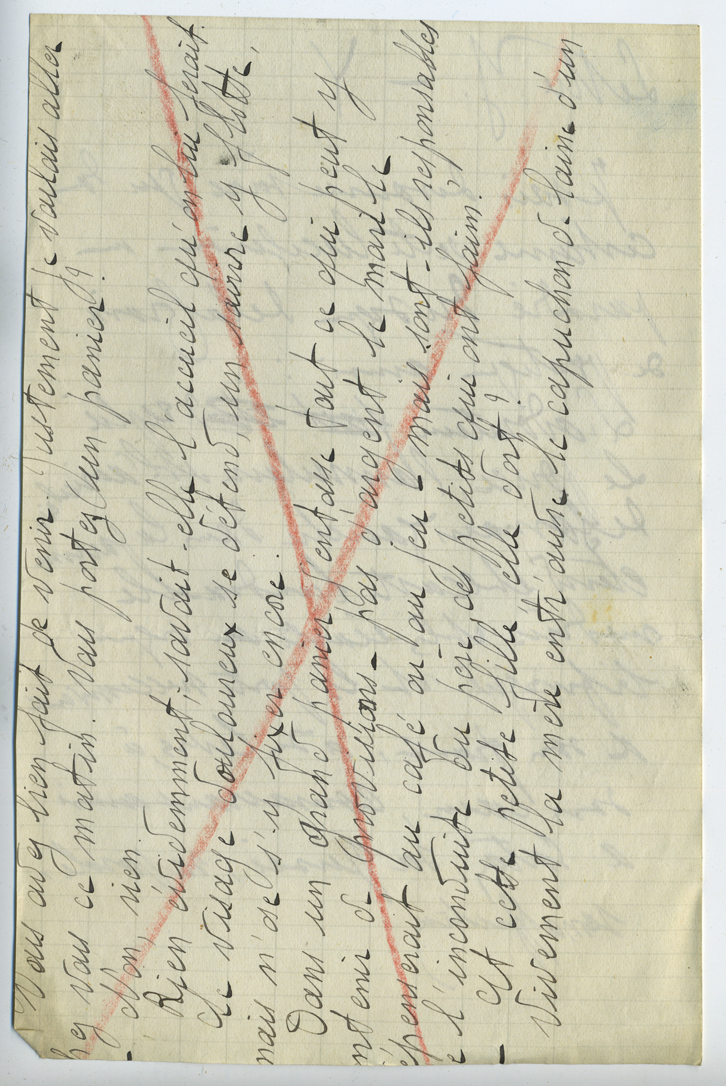 Vous avez bien fait de venir. Justement je voulais aller
hez vous ce matin. Vous portez un panier?
– Non, rien.
Rien évidemment, savait-elle l'accueil qu'on lui ferait.
Le visage douloureux se détend, un sourire y flotte,
mais n'ose s'y fixer encore.
Dans un grand panier j'entasse tout ce qui peut y
ntenir de provisions – pas d'argent le mari le
épenserait au café ou au jeu – mais sont-ils responsables
e l'inconduite du père, des petits qui ont faim?
– Et cette petite fille elle dort?
Vivement la mère entr'ouvre le capuchon de laine d'un